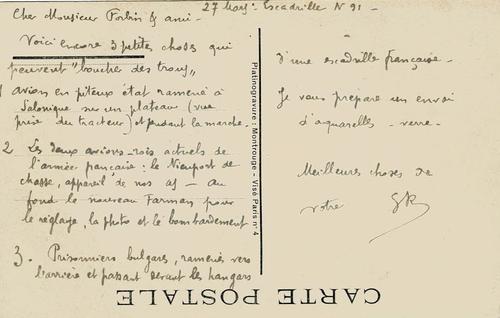 27 Mars - Escadrille N 91 -
Cher Monsieur Forbin & ami -
Voici encore 3 petites choses qui
peuvent "boucher des trous"
1 avion en piteux état ramené à
Salonique sur un plateau (vue
prise du tracteur) et pendant la marche.
2 Les deux avions-rois actuels de
l'armée française : le Nieuport de
chasse, appareil de nos as - Au
fond le nouveau Farman pour
le réglage, la photo et le bombardement
3. Prisonniers bulgares, ramenés vers
l'arrière et passant devant les hangars
Platinogravure : Montrouge - Visé Paris n° 4
d'une escadrille française -
Je vous prépare un envoi
d'aquarelles - verre -
Meilleures choses de
votre GR
CARTE POSTALE